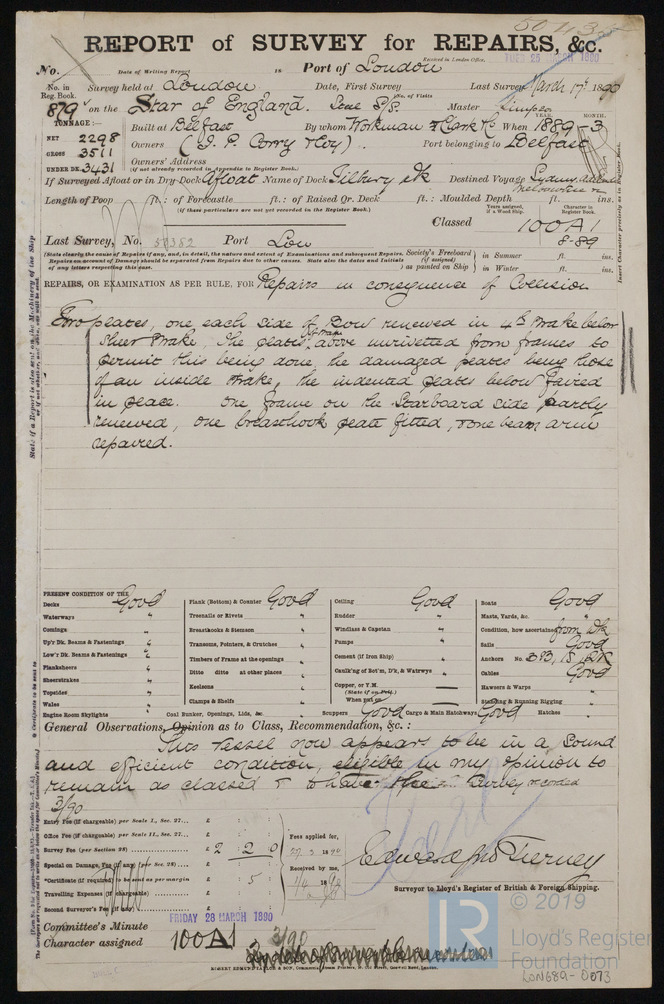 50435
REPORT of SURVEY for REPAIRS, &c.
Received in London Office,
TUES 25 MARCH 1890
No. Date of Writing Report is Port of London
No. in Reg. Book. Survey held at London Date, First Survey Last Survey March 17th 1890
No. of Visits
879 on the Star of England. Master Simpson
TONNAGE:— YEAR. MONTH.
NET 2298 Built at Belfast By whom Workman & Clark When 1889-3
GROSS 3511 Owners (J. P. Corry & Coy). Port belonging to Belfast
UNDER DK. 3431 Owners' Address
(if not already recorded in Appendix to Register Book.)
If Surveyed Afloat or in Dry-Dock Afloat Name of Dock Tilbury Dk Destined Voyage Sydney,
Length of Poop ft.: of Forecastle ft.: of Raised Qr. Deck ft.: Moulded Depth ft. ins.
(if these particulars are not yet recorded in the Register Book.)
Years assigned, if a Wood Ship. Character in Register Book.
Classed 100A1
Last Survey, No. 50382 Port Lon 8-89
(State clearly the cause of Repairs if any, and, in detail, the nature and extent of Examinations and subsequent Repairs. Society's Freeboard in Summer ft. ins.
Repairs on account of Damage should be separated from Repairs due to other causes. State also the dates and Initials (if assigned)
of any letters respecting this case. ) as painted on Ship in Winter ft. ins.
REPAIRS, OR EXAMINATION AS PER RULE, FOR Repairs in consequence of Collision
Two plates, one each side of Bow renewed in 4th Strake below
Sheer Strake. The plates of strake above unrivetted from frames to
permit this being done, the damaged plates being those
of an inside strake, the indented plates below faired
in place. One frame on the Starboard side partly
renewed, one breasthook plate fitted, & one beam arm
repaired.
PRESENT CONDITION OF THE
Decks Good Plank (Bottom) & Counter Good Ceiling Good Boats Good
Waterways " Treenails or Rivets " Rudder " Masts, Yards, &c. "
Comings " Breasthooks & Stemson " Windlass & Capstan " Condition, how ascertained from Dk
Up'r Dk. Beams & Fastenings " Transoms, Pointers, & Crutches " Pumps " Sails Good
Low'r Dk. Beams & Fastenings " Timbers of Frame at the openings " Cement (if Iron Ship) " Anchors No. 3B, 1S, 2K
Plankshears " Ditto ditto at other places " Caulk'ng of Bot'm, D'k, & Watrwys " Cables Good
Sheerstrakes " Keelsons " Copper, or Y.M. — Hawsers & Warps "
Topsides " Clamps & Shelfs " (State if on Felt.) Standing & Running Rigging "
Wales " When put on —
Engine Room Skylights " Coal Bunker, Openings, Lids, &c. " Scuppers Good Cargo & Main Hatchways Good Hatches "
General Observations, Opinion as to Class, Recommendation, &c. :
This vessel now appears to be in a sound
and efficient condition, eligible in my opinion to
remain as classed & to have the Survey recorded
3/90
Entry Fee (if chargeable) per Scale I., Sec. 27... £ : :
Office Fee (if chargeable) per Scale II., Sec. 27... £ : : Fees applied for,
Survey Fee (per Section 28) £ 2 2 0
Special on Damage, Fee (if any) (per Sec. 28) £ : : Received by me,
*Certificate (if required) to be sent as per margin £ : 5 :
Travelling Expenses (if chargeable) £ : :
Second Surveyor's Fee (if any) £ : :
Edward Jno Tierney
Surveyor to Lloyd's Register of British & Foreign Shipping.
FRIDAY 28 MARCH 1890
Committee's Minute
Character assigned 100A1 3/90
ROBERT EDMUND TAYLOR & SON
© 2019
LR
Lloyd's Register
Foundation
LON689-0073